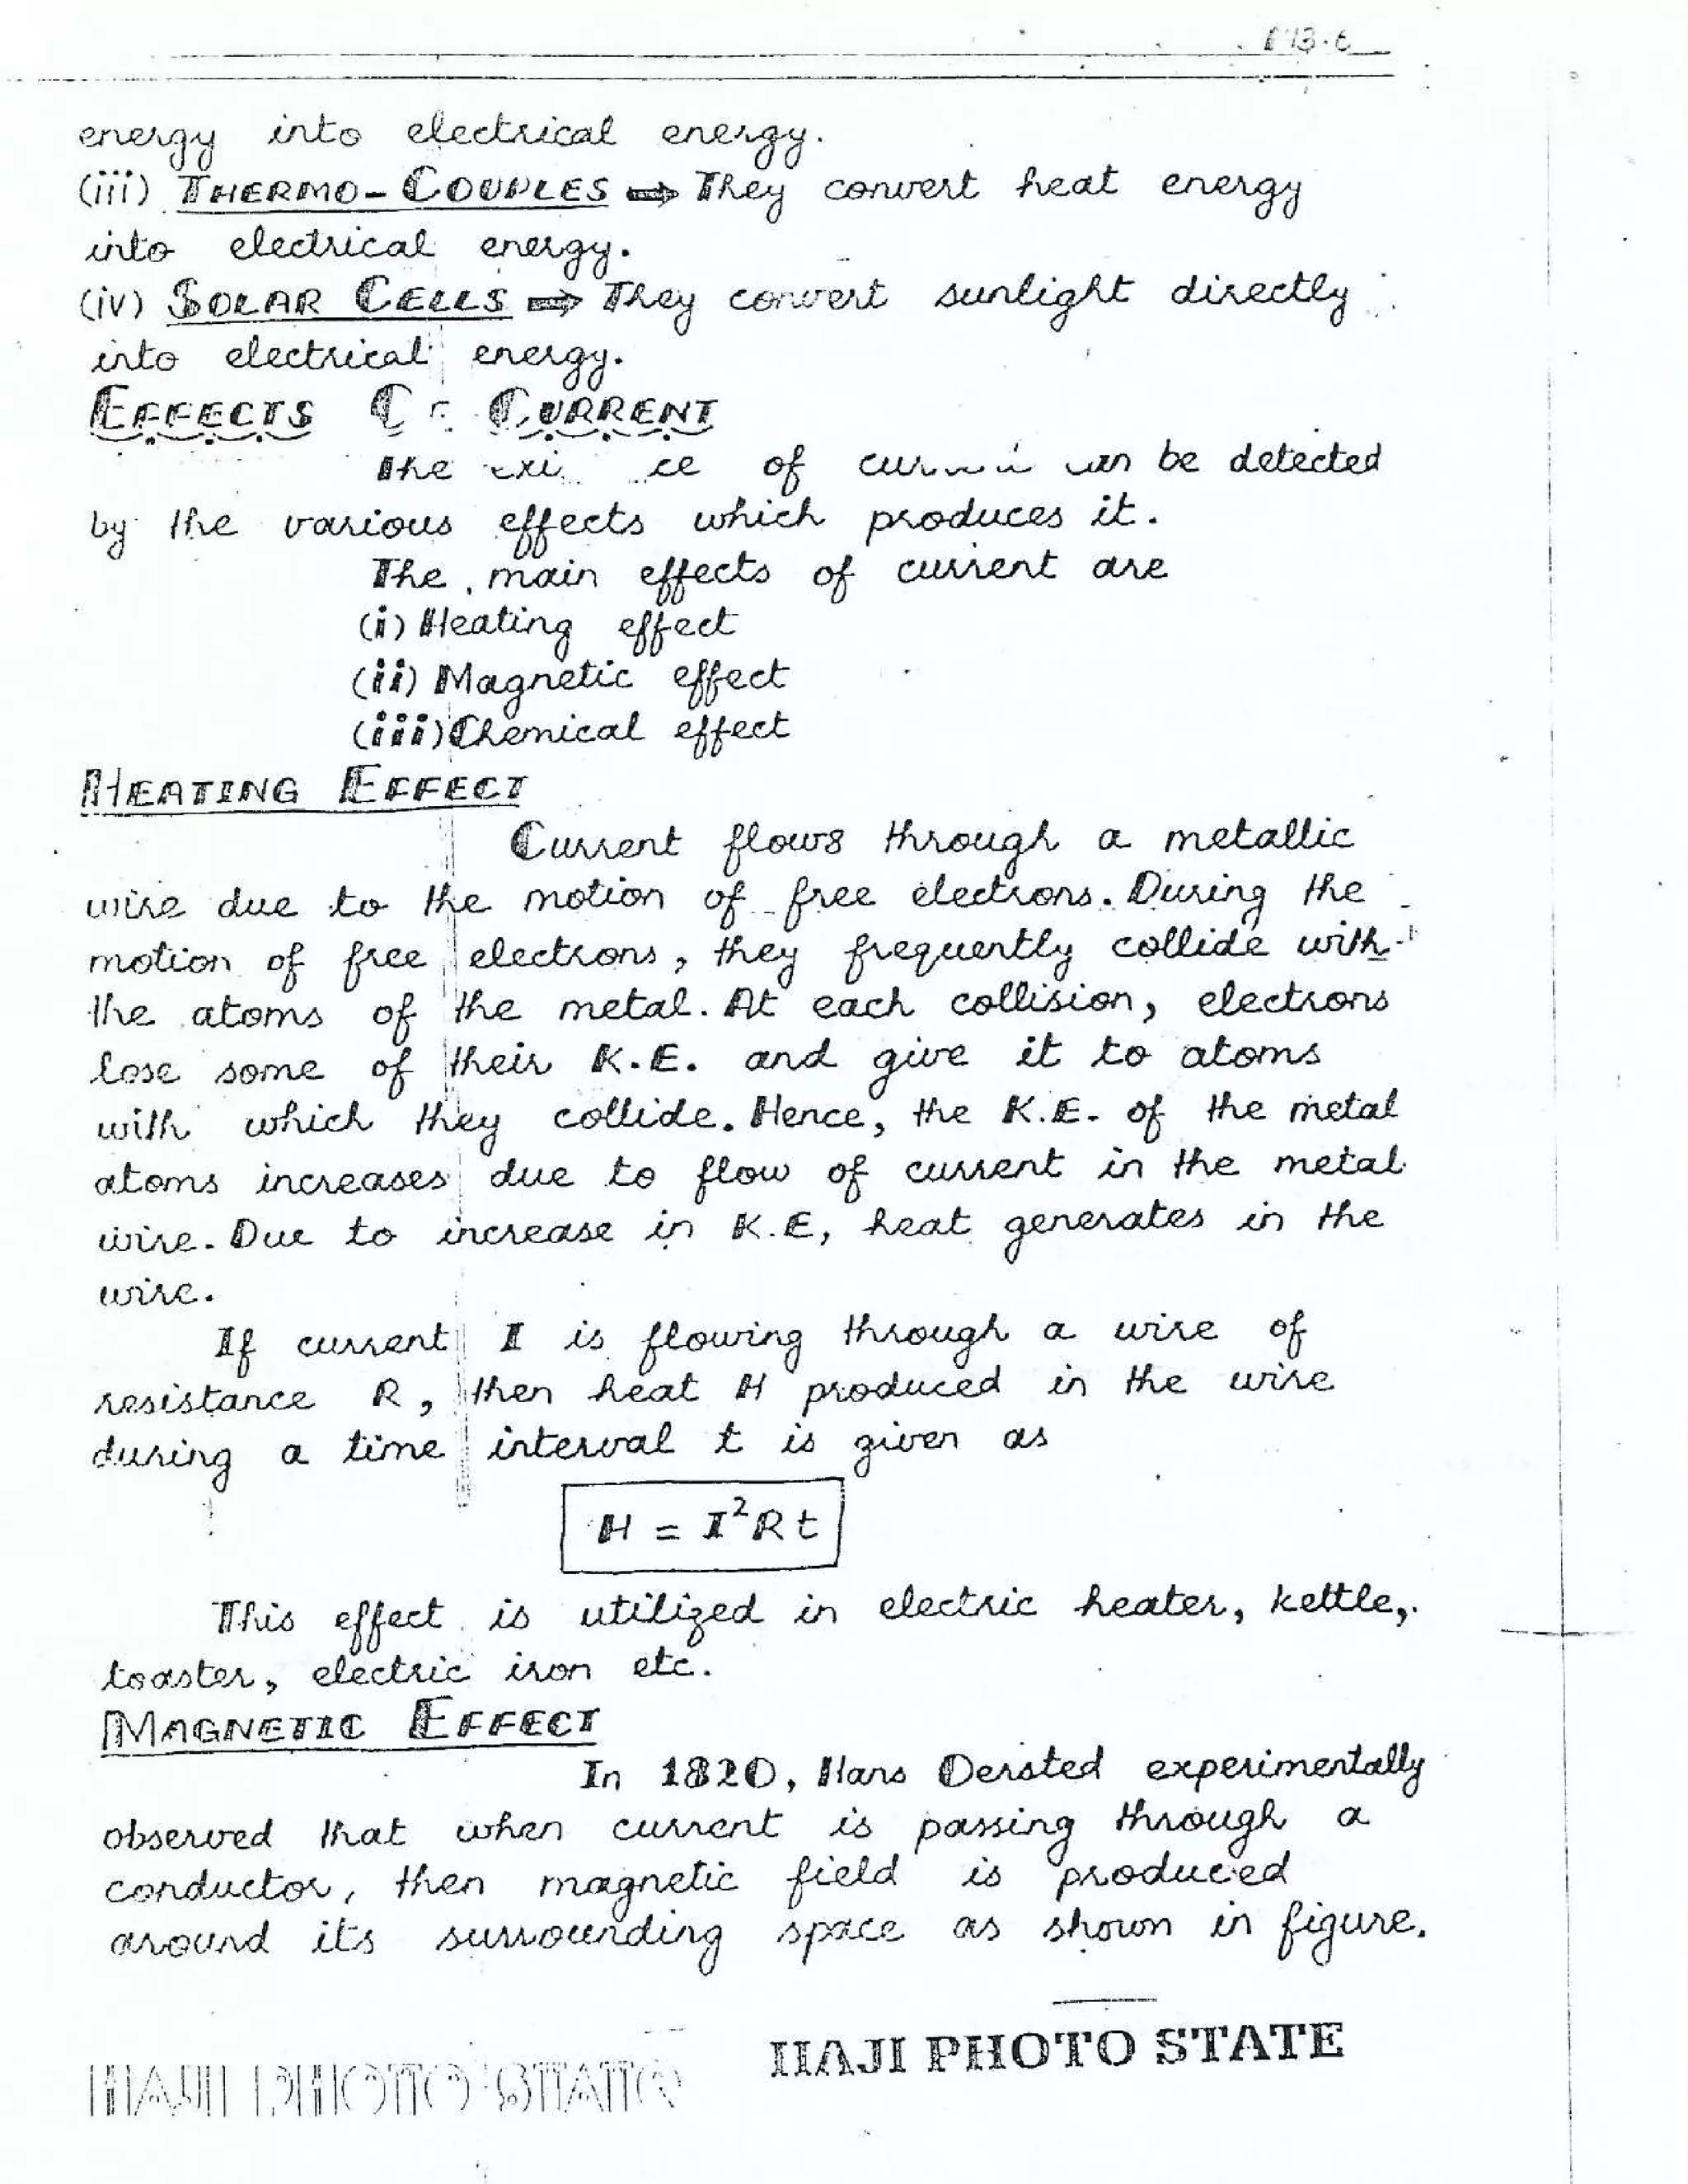 energy into electrical energy.
(iii) THERMO-COUPLES ⇒ They convert heat energy
into electrical energy.
(iv) SOLAR CELLS ⇒ They convert sunlight directly
into electrical energy.
EFFECTS CURRENT
The of can be detected
by the various effects which produces it.
The main effects of current are
(i) Heating effect
(ii) Magnetic effect
(iii) Chemical effect
HEATING EFFECT
Current flows through a metallic
wire due to the motion of free electrons. During the
motion of free electrons, they frequently collide with
the atoms of the metal. At each collision, electrons
lose some of their K.E. and give it to atoms
with which they collide. Hence, the K.E. of the metal
atoms increases due to flow of current in the metal
wire. Due to increase in K.E, heat generates in the
wire.
If current I is flowing through a wire of
resistance R, then heat H produced in the wire
during a time interval t is given as
H = I²Rt
This effect is utilized in electric heater, kettle,
toaster, electric iron etc.
MAGNETIC EFFECT
In 1820, Hans Oersted experimentally
observed that when current is passing through a
conductor, then magnetic field is produced
around its surrounding space as shown in figure.
HAJI PHOTO STATE
HAJI PHOTO STATE